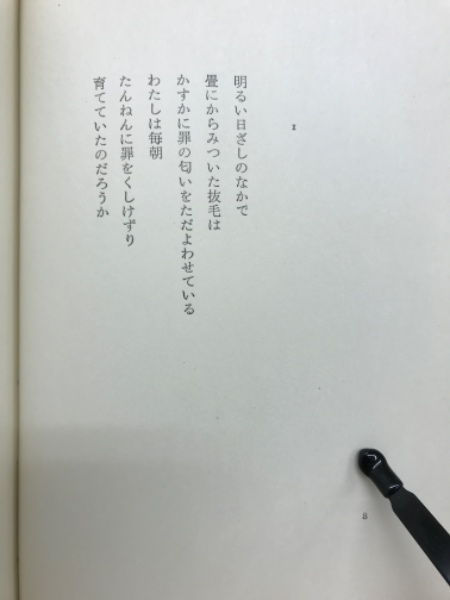 I
明るい日ざしのなかで
畳にからみついた抜毛は
かすかに罪の匂いをただよわせている
わたしは毎朝
たんねんに罪をくしけずり
育てていたのだろうか